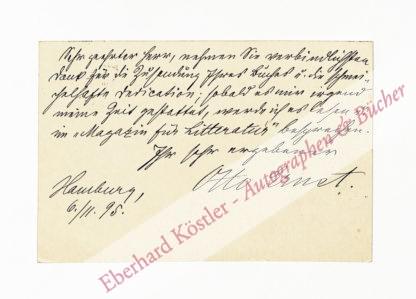 Sehr geehrter Herr, nehmen Sie verbindlichsten
Dank für die Zusendung Ihres Buches u. die schmei-
chelhafte Dedication. Sobald es mir irgend
meine Zeit gestattet, werde ich es lesen u.
im "Magazin für Litteratur" besprechen.
Ihr sehr ergebener
Otto Ernst.
Hamburg,
6./11. 95.
Eberhard Köstler - Autographen & Bücher